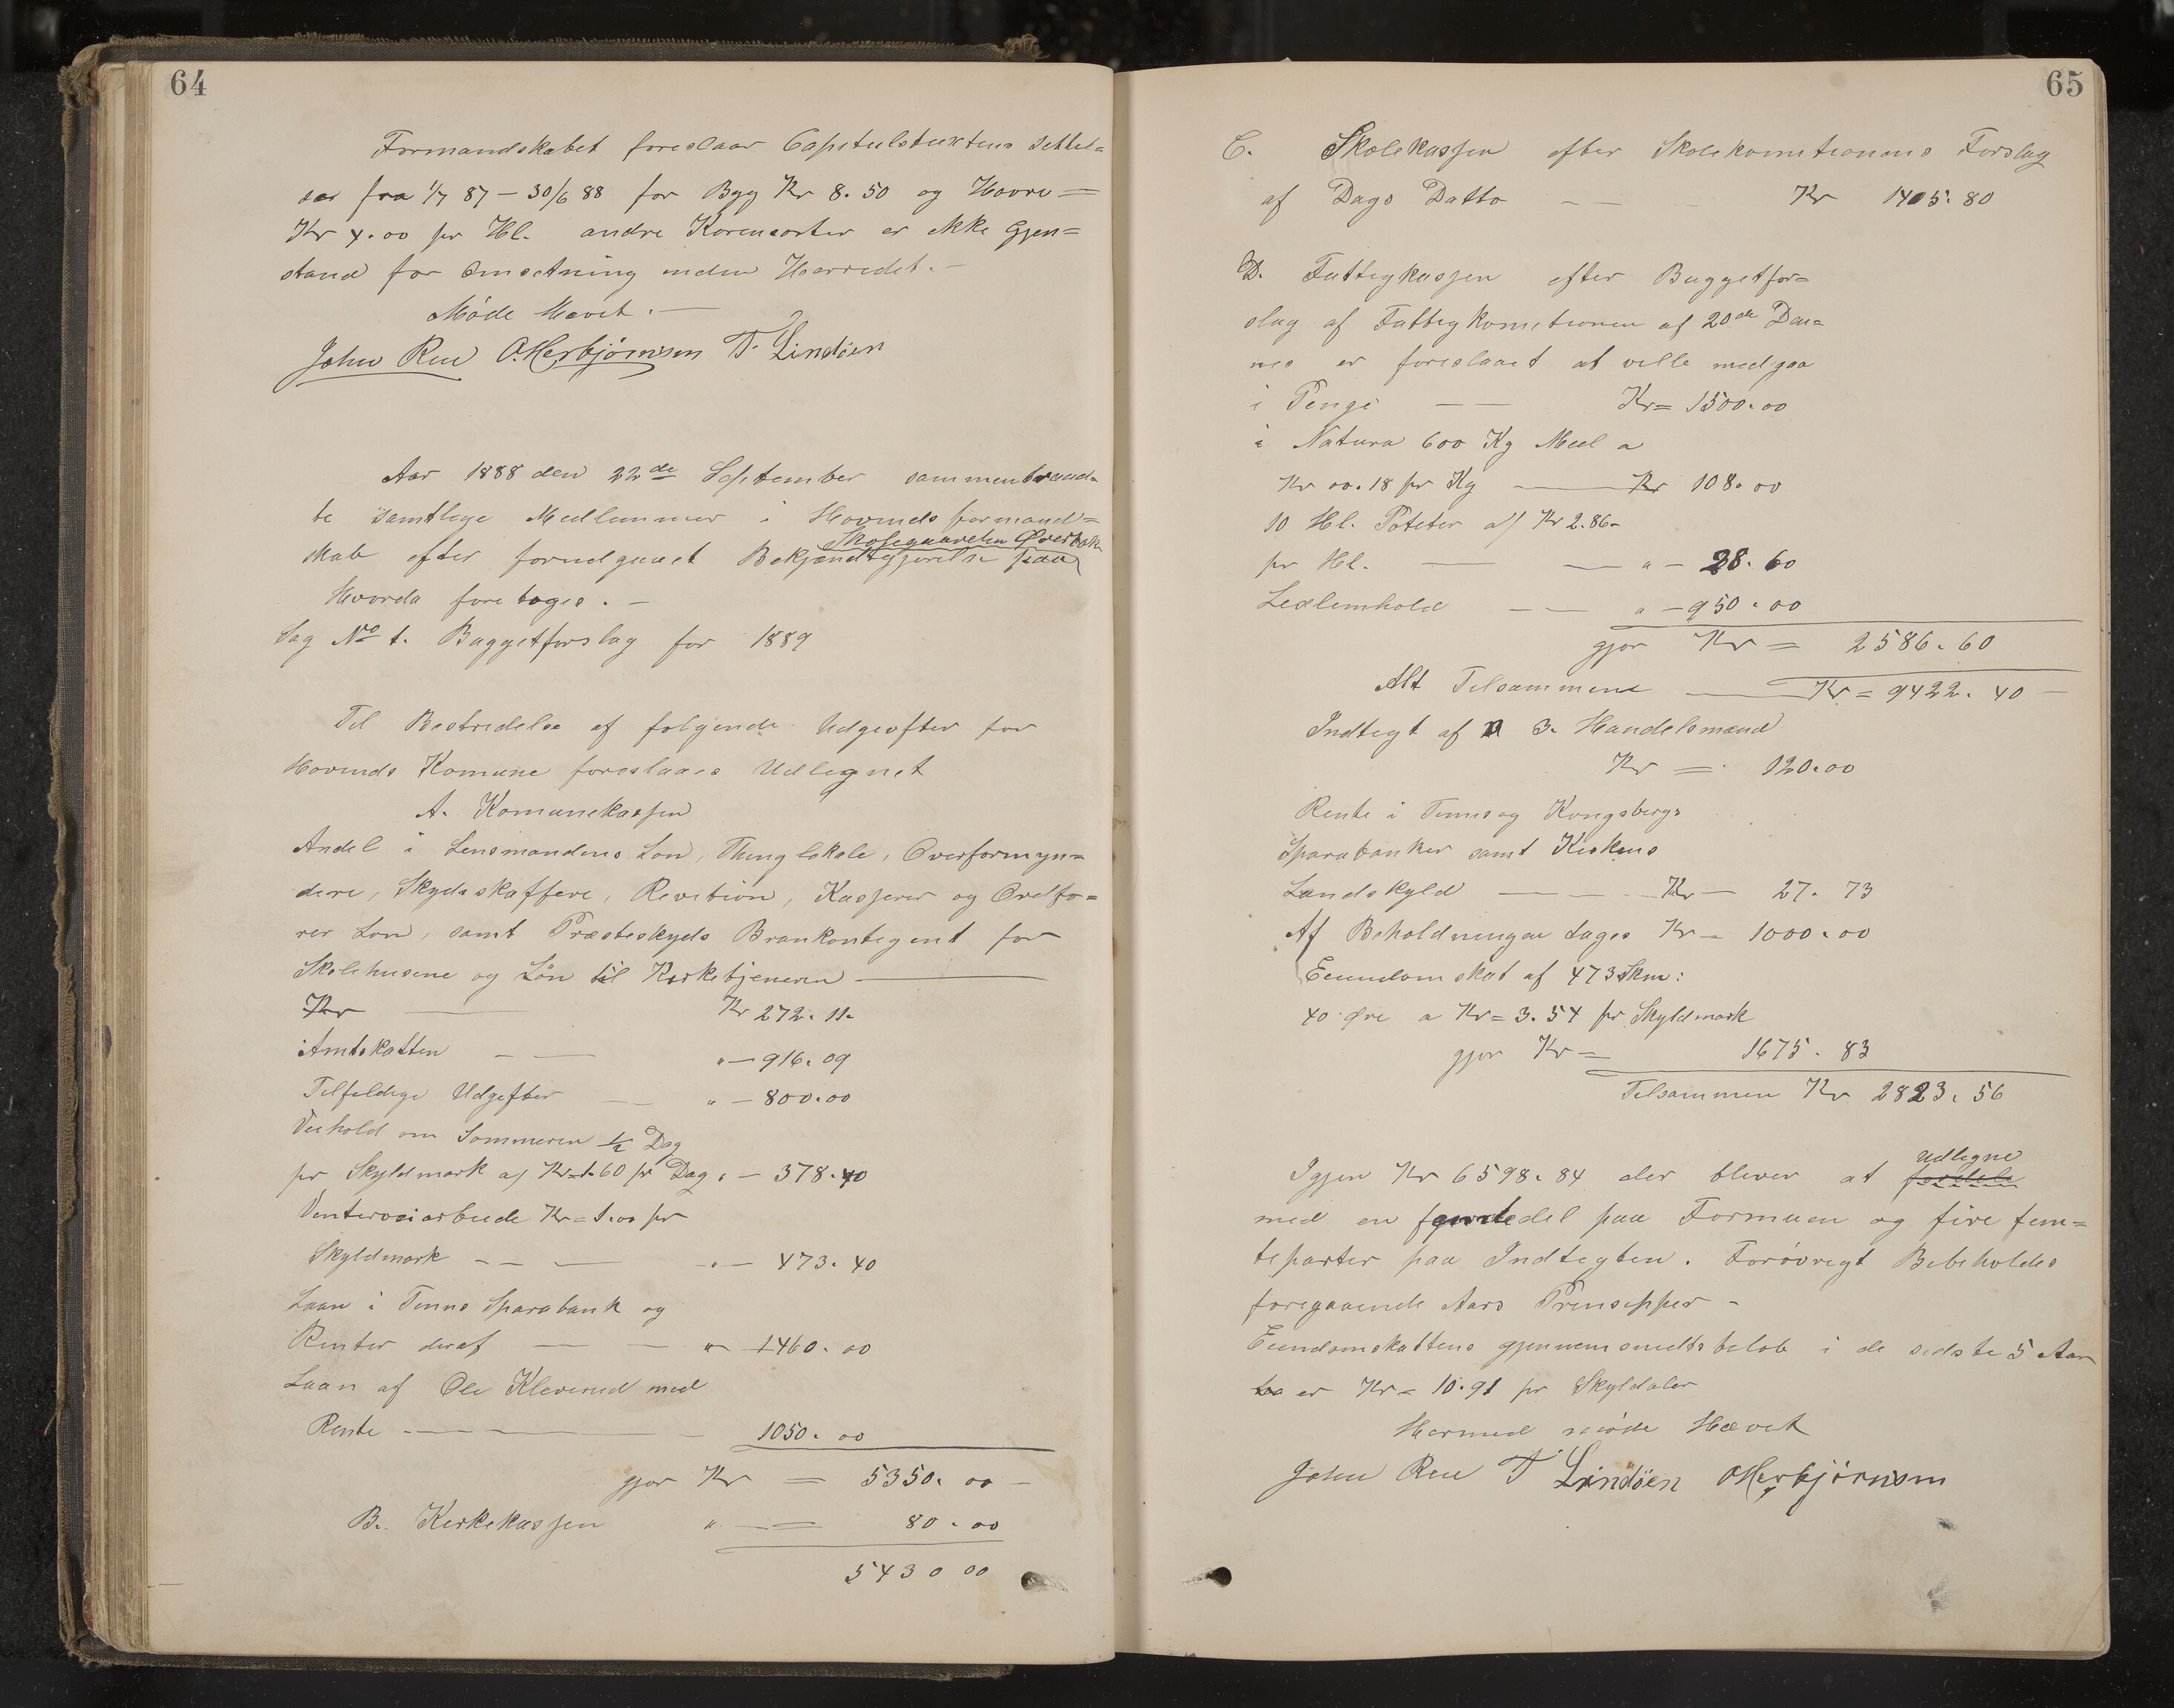 64
Formandskabet foreslaar Capitulstaxtens Settel=
ser fra 1/7 87 – 30/6 88 for Byg Kr 8.50 og Havre =
Kr 4.00 pr Hl. andre Kornsorter er ikke Gjen=
stand for Omsetning inden Herredet. –
Møde Hævet. –
John Rue O. Herbjørnsen T. Lindøen
Aar 1888 den 22de September sammentraad=
te samtlige Medlemmer i Hovinds formand=
skab efter forudgaaet Bekjændtgjørelse paa
Hvorda foretoges. –
Sag No 1. Buggetforslag for 1889
Til Bestridelse af følgende Udgifter for
Hovinds Komune foreslaaes Udlignet
A. Komunekassen
Andel i Lensmandens Løn, Thinglokale, Overformyn=
dere, Skydsskaffere, Revition, Kasserer og Ordfø=
rer Løn, samt Præsteskyds Brankontigent for
Skolehusene og Løn til Kirketjeneren —
Kr — Kr 272. 11.
Amtskatten – — " – 916. 09
Tilfeldige Udgifter — " – 800.00
Veihold om Sommeren 1/2 Dag
pr Skyldmark a/ Kr 1.60 pr Dag " – 378.40
Vinterveiarbeide Kr = 1.00 pr
Skyldmark – – — " – 473. 40
Laan i Tinns Sparebank og
Renter deraf — — " 1460. 00
Laan af Ole Kleverud med
Rente — — 1050. 00
gjør Kr = 5350. 00 –
B. Kirkekassen " = 80. 00
5430 00
65
C. Skolekassen efter Skolekomitionens Forslag
af Dags Datto – — Kr 1405. 80
D. Fattigkassen efter Buggetfor=
slag af Fattigkomitionen af 20de Den=
nes er foreslaaet at ville medgaa
i Penge — Kr = 1500.00
i Natura 600 Kg Meel a
Kr 00.18 pr Kg — Kr 108.00
10 Hl. Poteter a/ Kr 2.86-
pr Hl. — — " – 28. 60
Leilemhold — — " – 950.00
gjør Kr = 2586. 60
Alt Tilsammens — Kr = 9422. 40 –
Indtegt af 3. Handelsmænd
Kr = 120.00
Rente i Tinns og Kongsbergs
Sparebanker samt Kirkens
Landskyld — — Kr – 27. 73
Af Beholdningen tages Kr – 1000.00
Eiendomskat af 473 Skm:
40 Øre a Kr = 3.54 pr Skyldmark
gjør Kr = 1675. 83
Tilsammen Kr 2823. 56
udligne
Igjen Kr 6598. 84 der bliver at fordele
med en femtedel paa Formuen og fire fem=
teparter paa Indtegten. Forøvrigt Bibeholdes
foregaaende Aars Prinsipper –
Eiendomskattens gjennemsnitsbeløb i de sidste 5 Aar
er Kr = 10.91 pr Skyldaler
Hermed møde Hævet
John Rue T Lindöen O Herbjörnsen